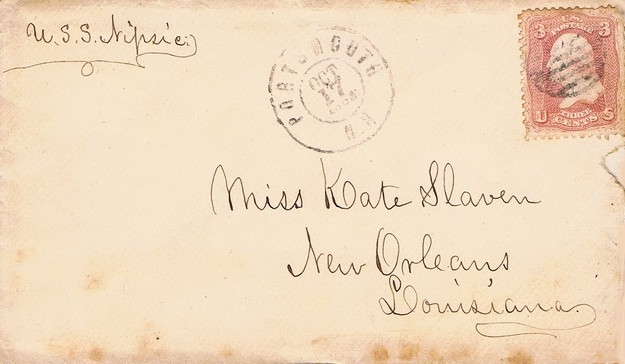 U.S.S. Nipsic
PORTSMOUTH N.H.
OCT
17
3 U.S. POSTAGE 3
U THREE CENTS S
Miss Kate Slaven
New Orleans
Louisiana